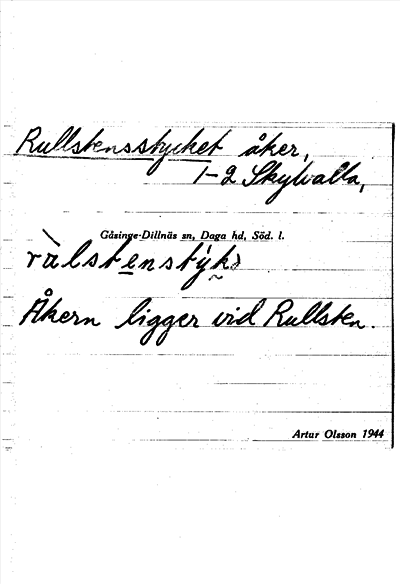 Rullstensstycket åker,
1-2 Skylvalla,
Gåsinge-Dillnäs sn, Daga hd, Söd. l.
Åkern ligger vid Rullsten.
Artur Olsson 1944